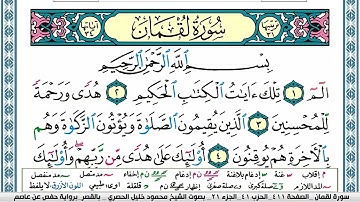 سُورَةُ لُقْمَانَ
بِسْمِ ٱللَّهِ ٱلرَّحْمَٰنِ ٱلرَّحِيمِ
الٓمٓ ١ تِلْكَ ءَايَٰتُ ٱلْكِتَٰبِ ٱلْحَكِيمِ ٢ هُدًى وَرَحْمَةً
لِّلْمُحْسِنِينَ ٣ ٱلَّذِينَ يُقِيمُونَ ٱلصَّلَوٰةَ وَيُؤْتُونَ ٱلزَّكَوٰةَ وَهُم
بِٱلْءَاخِرَةِ هُمْ يُوقِنُونَ ٤ أُو۟لَٰٓئِكَ عَلَىٰ هُدًى مِّن رَّبِّهِمْ وَأُو۟لَٰٓئِكَ
سورة لقمان - الصفحة ٤١١ - الجزء ٢١ - بصوت الشيخ محمود خليل الحصري - بالقصر برواية حفص عن عاصم